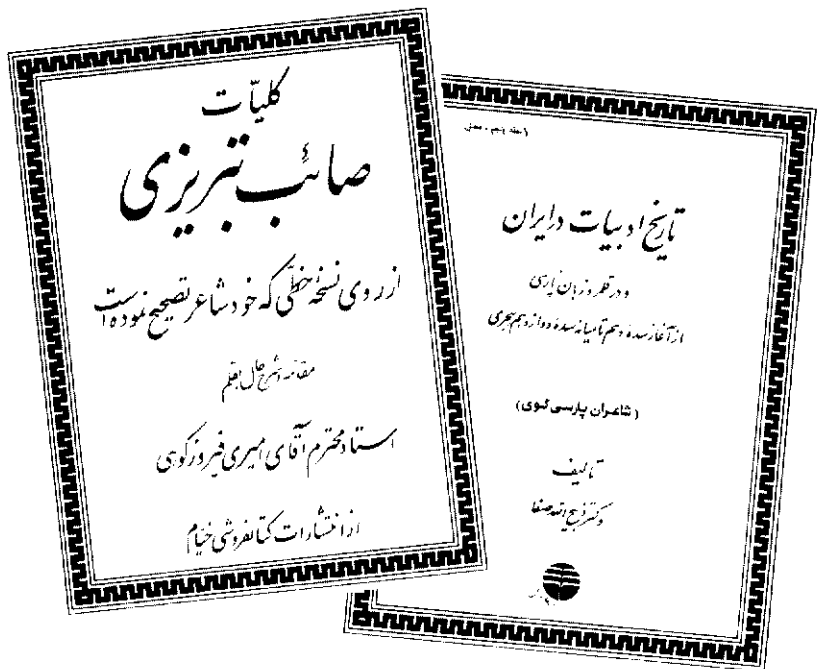 کلیّات
صائب تبریزی
از روی نسخهٔ خطّی که خود شاعر تصحیح نموده است
مقدمه و شرح حال بقلم
استاد محترم آقای امیری فیروزکوهی
از انتشارات کتابفروشی خیام
تاریخ ادبیات در ایران
و در قلمرو زبان پارسی
از آغاز سدهٔ دهم تا میانهٔ سدهٔ دوازدهم هجری
(شاعران پارسی گوی)
تألیف
دکتر ذبیح الله صفا